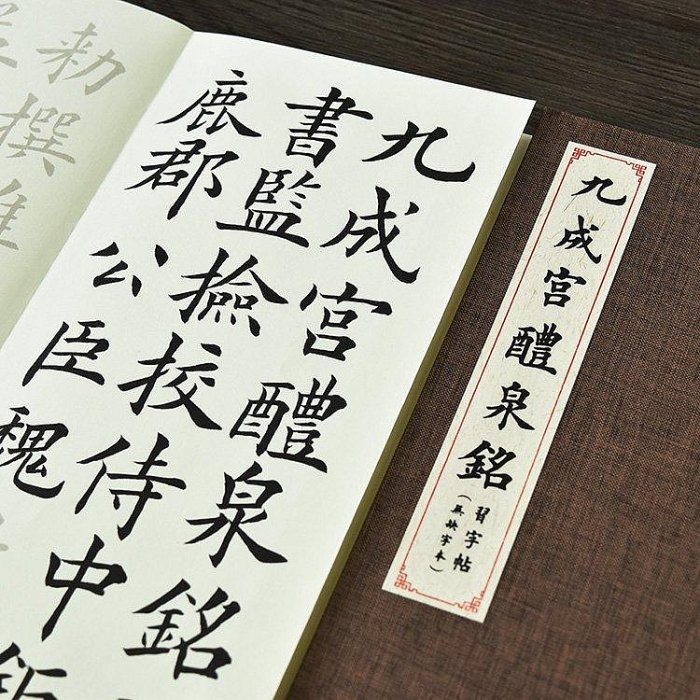 九成宮醴泉銘
書監撿挍侍中
鹿郡公臣魏
勅撰
九成宮醴泉銘
習字帖
(無缺字本)